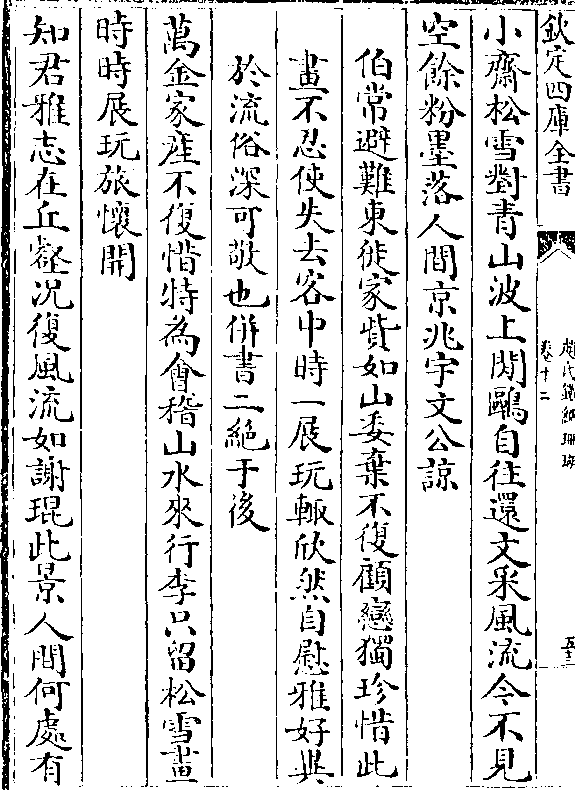 欽定四庫全書
趙氏鐵網珊瑚
卷十二
五十三
小齋松雪對青山波上閒鷗自往還文采風流今不見
空餘粉墨落人間京兆宇文公諒
伯常避難東徙家貲如山委棄不復顧戀獨珍惜此
畫不忍使失去客中時一展玩輙欣然自慰雅好異
於流俗深可敬也併書二絕于後
萬金家產不復惜特為會稽山水來行李只留松雪畫
時時展玩旅懷開
知君雅志在丘壑况復風流如謝琨此景人間何處有